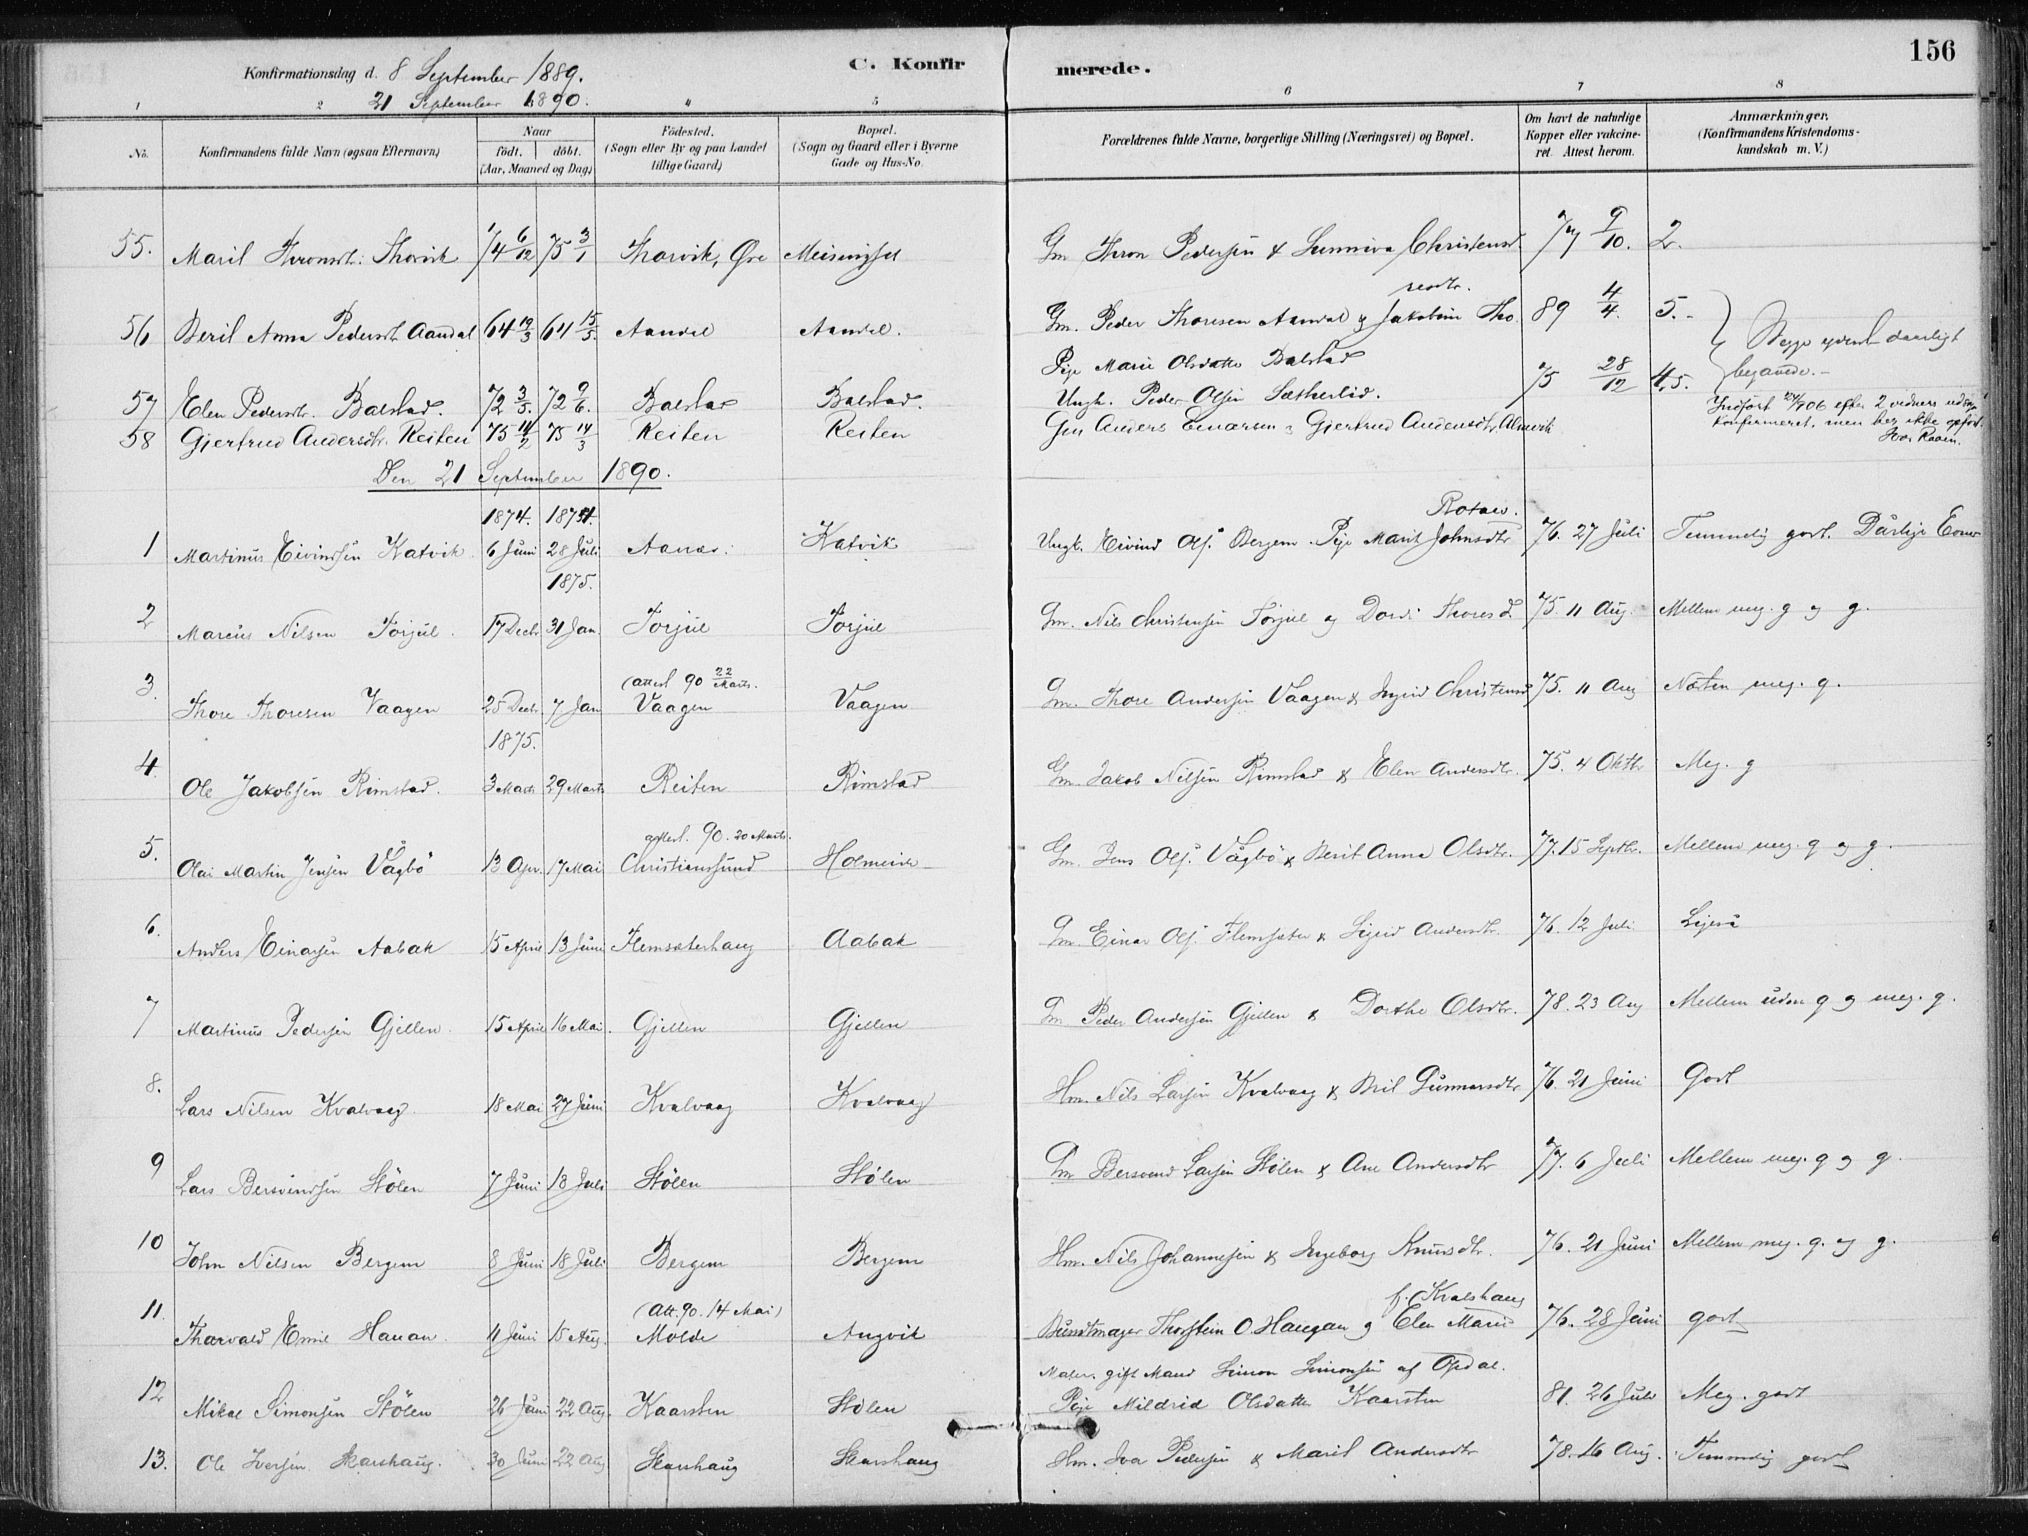 156
Konfirmationsdag d. 8 September 1889.
21 September 1890.
C. Konfirmerede.
1 2 4 5 6 7 8
No. Konfirmandens fulde Navn (ogsaa Efternavn) Naar födt. döbt. (Aar, Maaned og Dag) Födested. (Sogn eller By og paa Landet tillige Gaard) Bopæl. (Sogn og Gaard eller i Byerne Gade og Hus-No. Forældrenes fulde Navne, borgerlige Stilling (Næringsvei) og Bopæl. Om havt de naturlige Kopper eller vakcineret. Attest herom. Anmærkninger. (Konfirmandens Kristendomskundskab m. V.)
55. Marit Thronsdt. Thorvik 74 6/12 75 3/1 Thorvik, Øre Meisingset Gm Thron Pedersen & Sunniva Christensd. 77 9/10. 2.
resdtr.
56 Beril Anna Pedersdt Aandal 64 19/3 64 15/5. Aandal Aandal. Gm. Peder Thoresen Aandal & Jakobine Tho. 89 4/4. 5.- Begge yderst daarligt
Pige Marie Olsdatter Balstad
57 Elen Pedersdtr. Balstad. 72 3/5. 72 9/6. Balstad Balstad. Ungk. Peder Olsen Sætherlid. 75 28/12 4,5. begavede.-
58 Gjertrud Andersdtr. Reiten 75 14/2 75 14/3 Reiten Reiten Gm Anders Einarsen & Gjertrud Andersdtr. Almvik Indført 06 efter 2 vidners udsagn konfirmeret, men her ikke opført.
Den 21 September 1890.
1874. 1874. Rotaas.
1 Martinus Eivindsen Katvik 6 Juni 28 Juli Aanæs. Katvik Ungk. Eivind Ols. Bergem. Pige Marit Johnsdtr 76. 27 Juli Temmelig godt. Dårlige Evner
1875.
2 Marcus Nilsen Torjul. 17 Decbr 31 Jan. Torjul Torjul Gm. Nils Christensen Torjul og Dordi Thoresd. 75. 11 Aug. Mellem meg. g og g.
(attest 90 22/Marts.
3. Thore Thoresen Vaagen 25 Decbr. 7 Jan Vaagen Vaagen Gm. Thore Andersen Vaagen & Ingrid Christensd 75. 11 Aug Næsten meg. g.
1875.
4. Ole Jakobsen Rimstad. 3 Marts 29 Marts Reiten Rimstad Gm. Jakob Nilsen Rimstad & Elen Andersdtr. 75. 4 Oktbr Meg. g
attest. 90. 20 Marts.
5. Olai Martin Jensen Vågbö 13 Apr. 17 Mai Christianssund Holmeide Gm. Jens Ols. Vågbö & Berit Anna Olsdtr. 77. 15 Septbr. Mellem meg. g og g.
6. Anders Einarsen Aabak 15 April 13 Juni Flemsæterhaug Aabak Gm. Einar Ols. Flemsæter & Sigrid Andersdtr. 76. 12 Juli. Ligeså
7 Martinus Pedersen Gjellen. 15 April 16 Mai. Gjellen Gjellen Gm Peder Andersen Gjellen & Dorthe Olsdtr. 78. 23 Aug Mellem uden g og meg. g.
8. Lars Nilsen Kvalvaag. 18 Mai 27 Juni Kvalvaag Kvalvaag Hm. Nils Larsen Kvalvaag & Beril Gunnarsdtr 76. 21 Juni Godt
9 Lars Bersvendsen Stölen 7 Juni 18 Juli Stölen Stölen Gm Bersvend Larsen Stölen & Ane Andersdtr 77. 6 Juli Mellem meg. g og g.
10 John Nilsen Bergem 8 Juni 18 Juli Bergem Bergem Hm. Nils Johannesen & Ingeborg Knudsdtr. 76. 21 Juni Mellem meg. g. og g.
(Att. 90. 14 Mai) f. Kvalshaug
11. Tharvald Emil Hauan. 11 Juni 15 Aug. Molde Angvik Bundtmager Thorstein O. Haugan og Elen Marie 76. 28 Juni godt
Maler. gift Mand Simon Simonsen af Opdal.
12 Mikal Simonsen Stölen 26 Juni 22 Aug. Kaarsten Stölen Pige Mildrid Olsdatter Kaarsten 81. 26 Juli Meg. godt
13. Ole Iversen Skarshaug. 30 Juni 22 Aug Skarshaug Skarshaug Hm. Iver Pedersen & Maril Andersdtr 78. 16 Aug. Temmelig godt